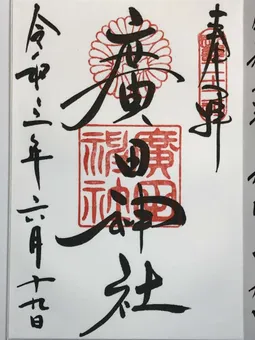 奉拝
廣田神社
令和三年六月十九日
廣田
神社